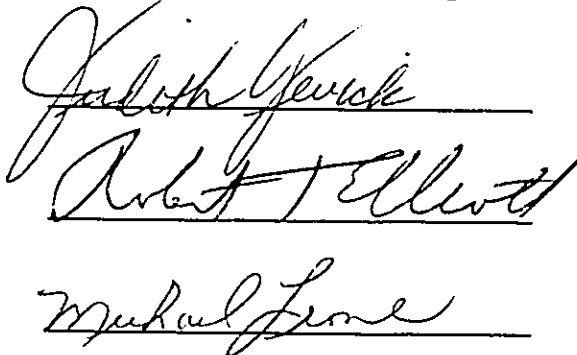 Judith Yevick
Robert T Elliott
Michael Leone